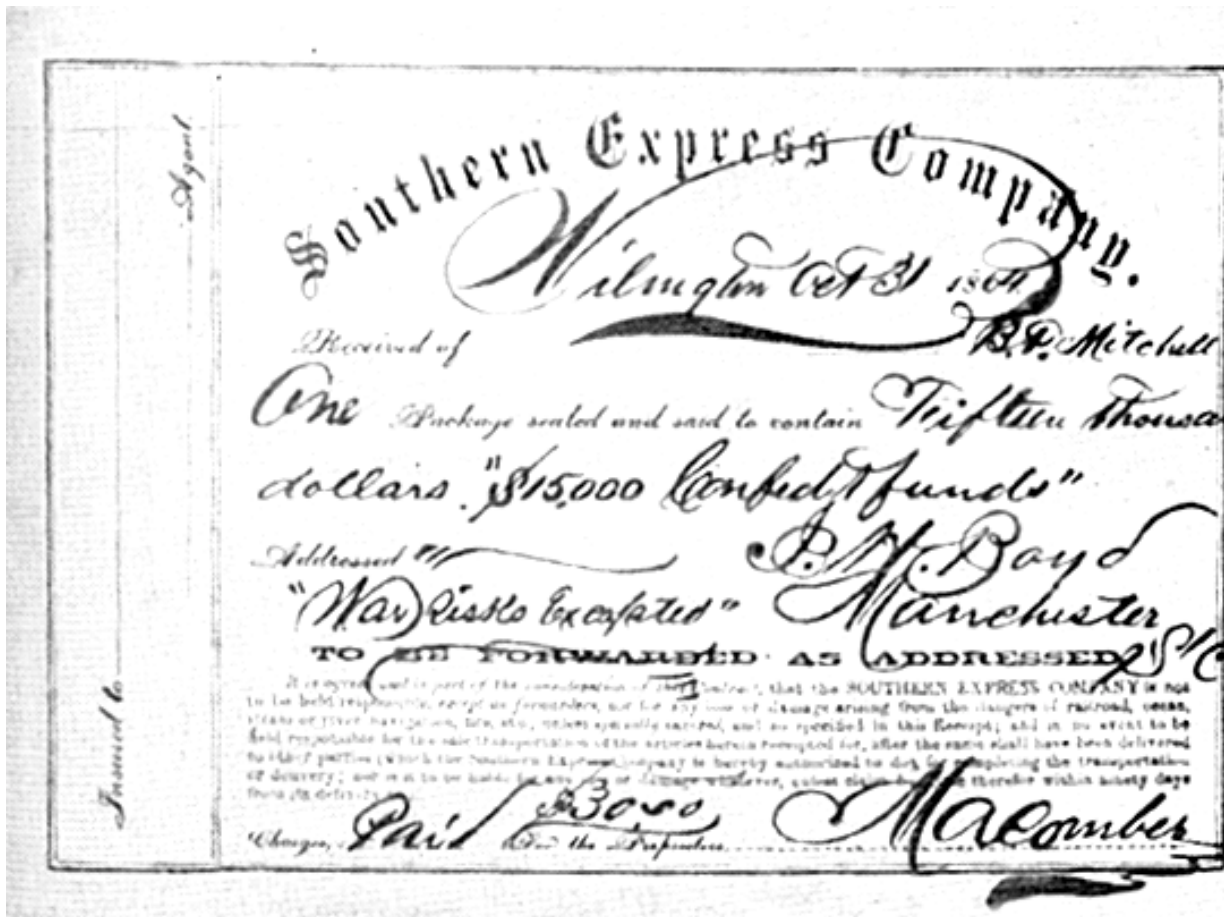 Southern Express Company.
Wilmington Oct 31 1864
Received of B.F. Mitchell
One Package sealed and said to contain Fifteen thousa
dollars. "$15,000 Confedt funds"
Addressed Boyd
"War Risks Excepted" Manchester
S C
TO BE FORWARDED AS ADDRESSED
It is agreed, and is part of the consideration of this Contract, that the SOUTHERN EXPRESS COMPANY is not
to be held responsible, except as forwarders, nor for any loss or damage arising from the dangers of railroad, ocean,
steam or river navigation, fire, etc., unless specially insured, and so specified in this Receipt; and in no event to be
held responsible for the safe transportation of the articles herein receipted for, after the same shall have been delivered
to other parties (which the Southern Express Company is hereby authorized to do), for completing the transportation
or delivery; nor is it to be liable for any loss or damage whatever, unless claim therefor within ninety days
from its delivery
Charges, Paid $30 50 For the Proprietors, Macomber
Insured to
Agent